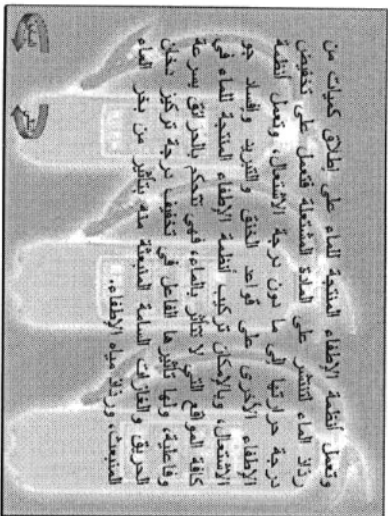 وتعمل أنظمة الإطفاء المنتجة للماء على إطلاق كميات من
رذاذ الماء لتنتشر على المادة المشتعلة فتعمل على تخفيض
درجة حرارتها إلى ما دون درجة الاشتعال، وتعمل أنظمة
الإطفاء الأخرى على قواعد الخنق والتبريد وإفساد جو
الاشتعال، وبالإمكان تركيب أنظمة الإطفاء المنتجة للماء في
كافة المواقع التي لا تتأثر بالماء، فهي تتحكم بالحرائق بسرعة
وفاعلية، ولها تأثيرها الفاعل في تخفيف درجة تركيز دخان
الحريق والغازات السامة المنبعثة منه بتأثير من بخر الماء
المنبعث، ورذاذ مياه الإطفاء.